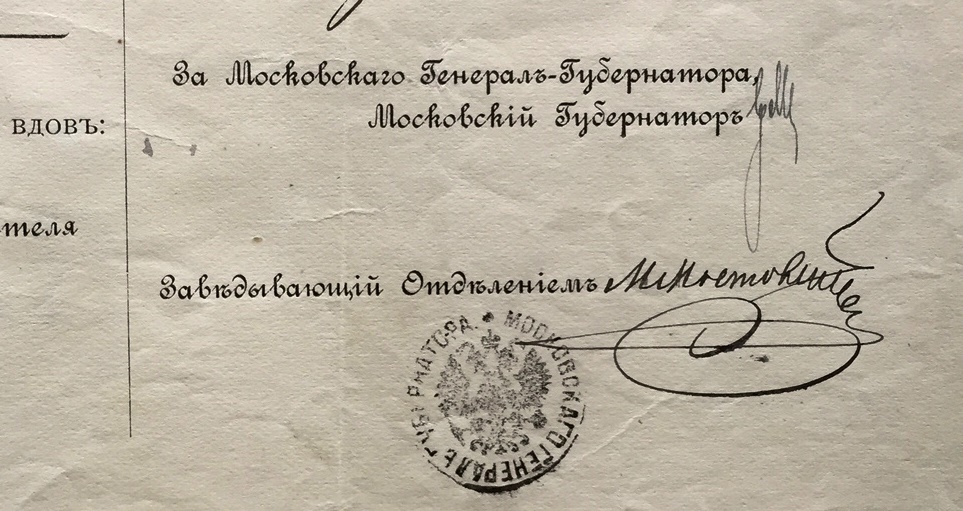 За Московскаго Генералъ-Губернатора,
Московскій Губернаторъ
вдовъ:
теля
Завѣдывающій Отдѣленіемъ
МОСКОВСКАГО ГЕНЕРАЛЪ ГУБЕРНАТОРА